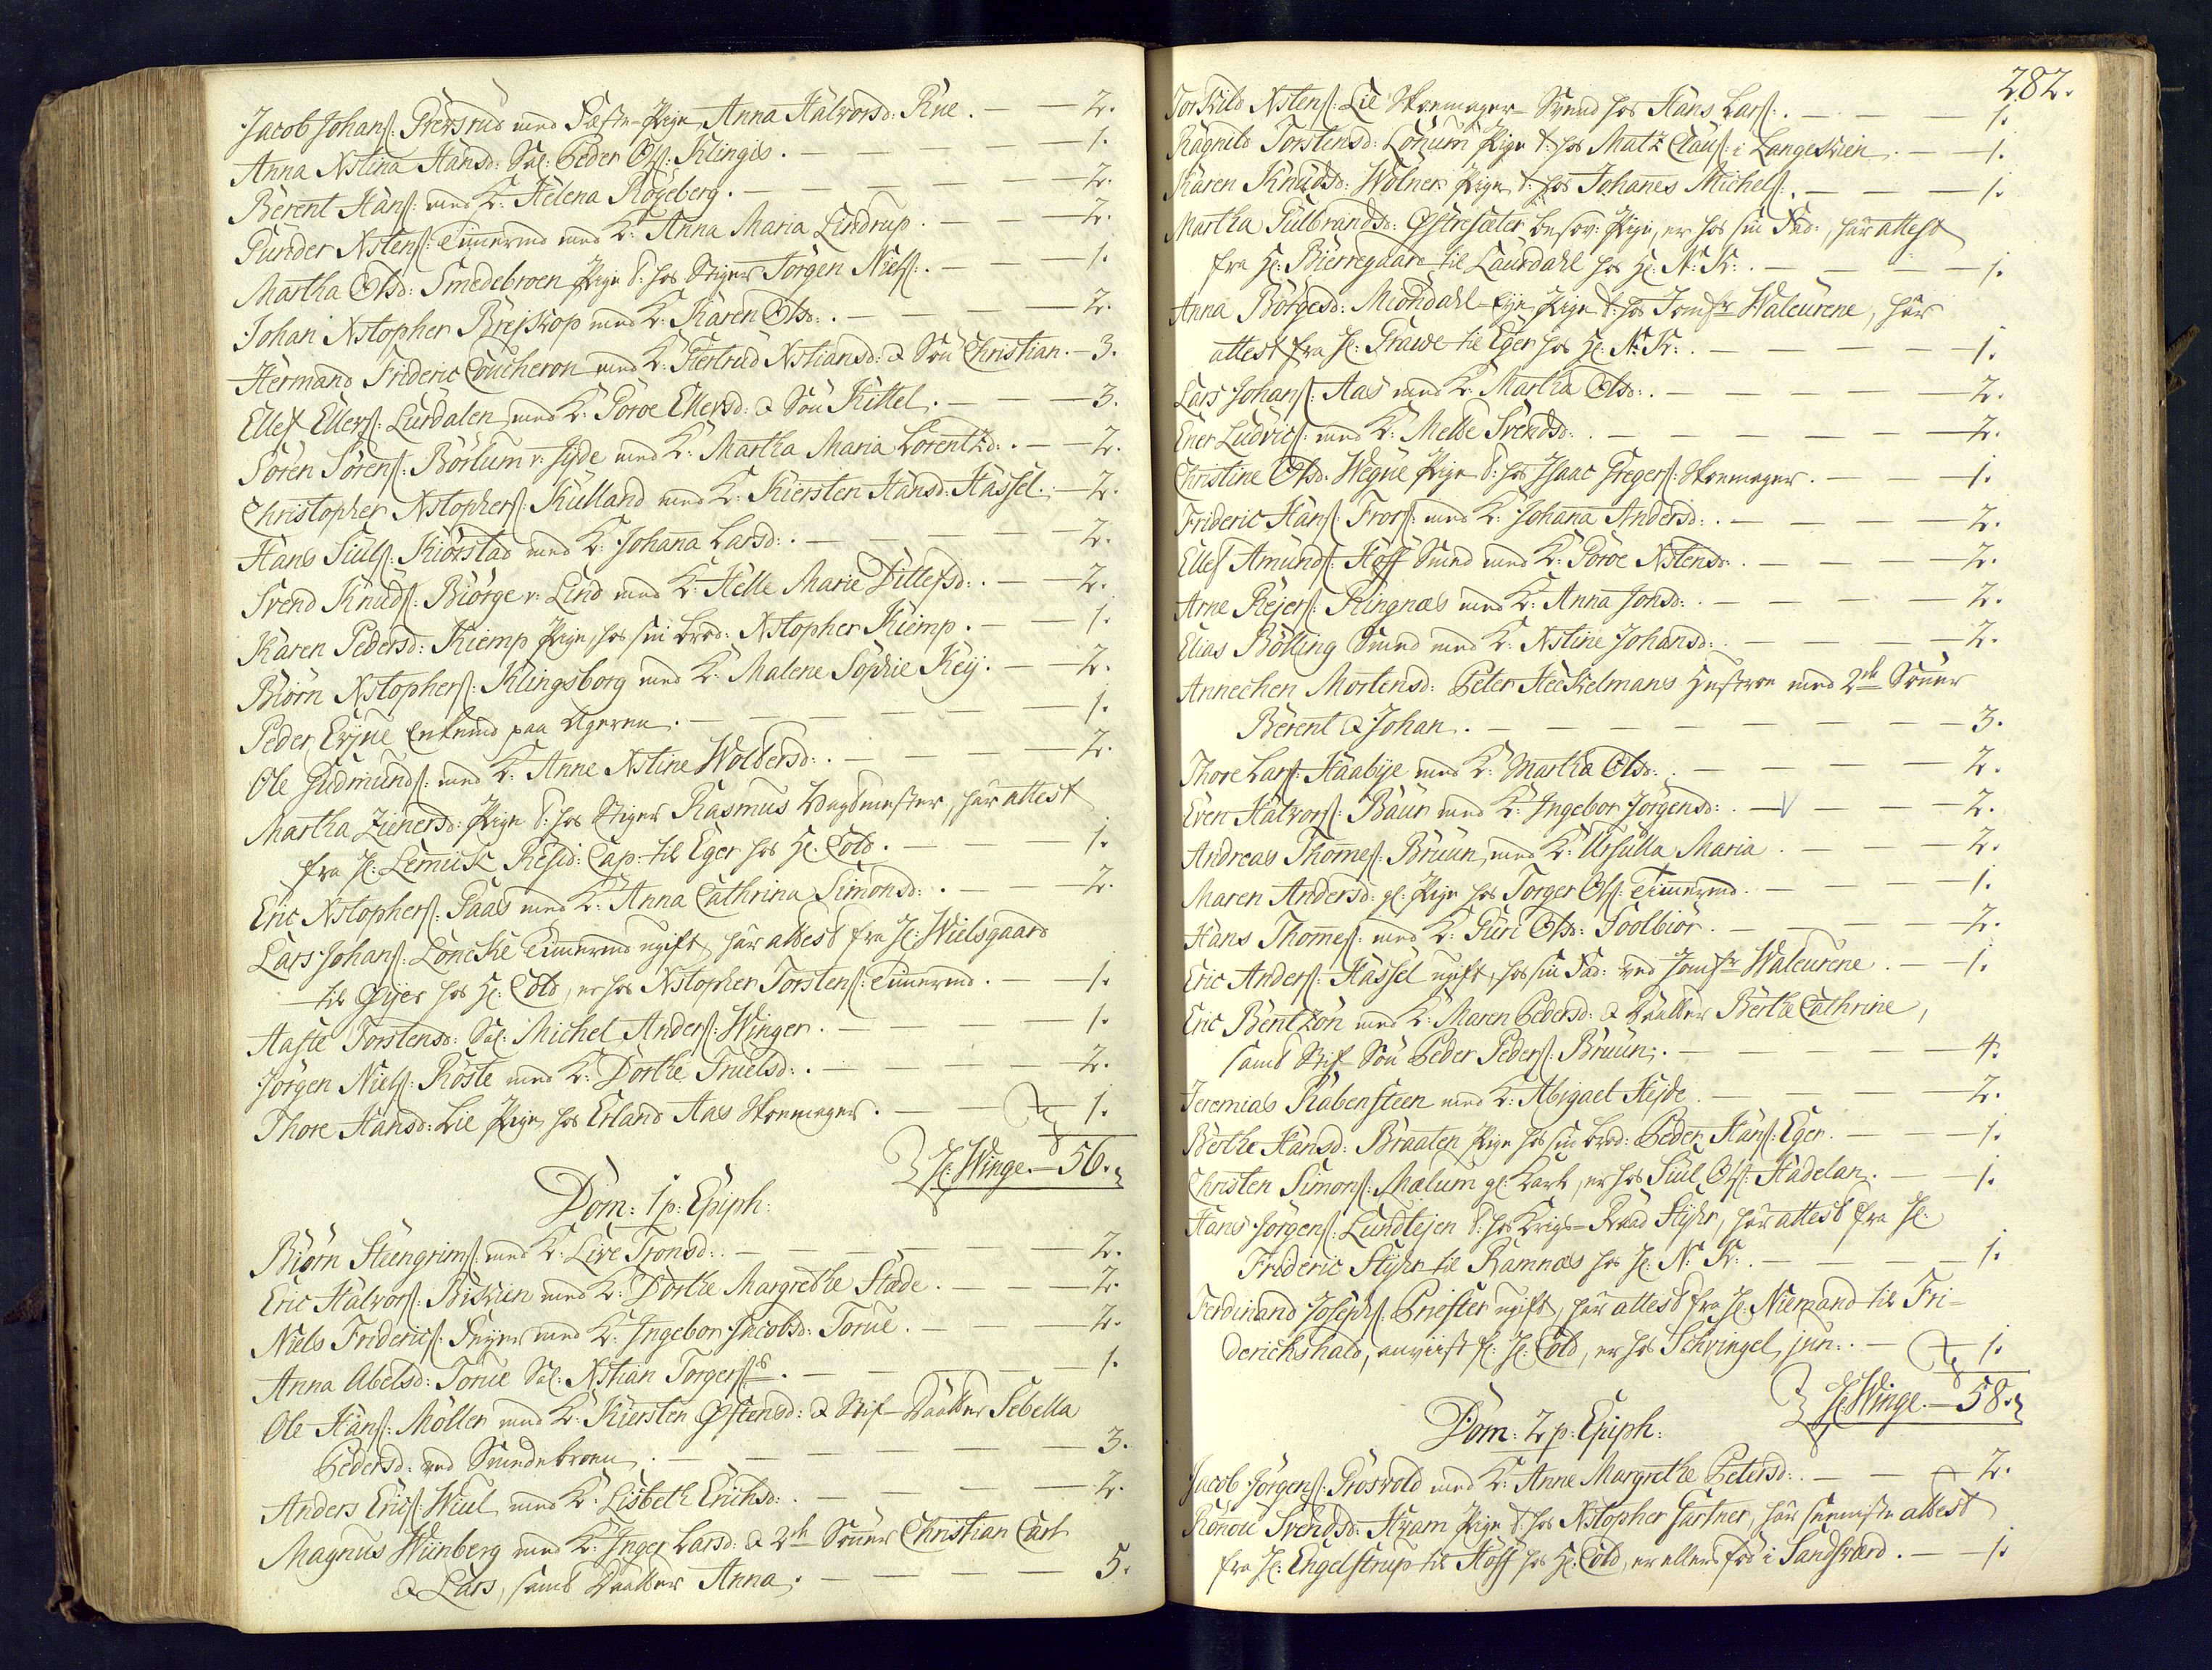 Jacob Johans: Grevsrud med Fæste-Pige Anna Halvorsd: Rue. — — 2.
Anna Xstina Hansd: Sal: Peder Ols: Klingis. — — — — — 1.
Berent Hans: med K: Helena Rögeberg. — — — — — 2.
Gunder Xstens: Timermd med K: Anna Maria Lindrup. — — — 2.
Martha Olsd: Smedebroen Pige t: hos Stiger Jörgen Niels:. — — — 1.
Johan Xstopher Brejskop med K: Karen Olsd:. — — — — 2.
Hermand Frideric Coucheron med K: Giertrud Xstiansd: & Sön Christian. — 3.
Ellef Ellefs: Lurdalen med K: Goroe Ellefsd: & Sön Kittel. — — — 3.
Sören Sörens: Börlum v: Jyde med K: Martha Maria Lorentzd:. — — 2.
Christopher Xstophers: Kulland med K: Kiersten Hansd: Hassel. — 2.
Hans Siuls: Kiörstad med K: Johana Larsd:. — — — — 2.
Svend Knuds: Biörge v: Lind med K: Helle Marie Ditlefsd:. — — 2.
Karen Pedersd: Kiemp Pige, hos sin brod: Xstopher Kiemp. — — 1.
Biörn Xstophers: Klingsborg med K: Malene Sophie Keij. — — 2.
Peder Erjue Enkemd paa Ageren. — — — — — — 1.
Ole Gudmunds: med K: Anne Xstine Woldersd:. — — — — 2.
Martha Zienersd: Pige t: hos Stiger Rasmus Vagdmester, har attest
fra H: Lemiick Resid: Cap: til Eger hos H: Cold. — — — — 1.
Eric Xstophers: Gaas med K: Anna Cathrina Simonsd:. — — — 2.
Lars Johans: Loncke Timermd ugift, har attest fra H: Wielsgaard
til Øijer hos H: Cold, er hos Xstopher Torstens: Timermd. — — 1.
Aaste Torstensd: Sal: Michel Anders: Winger. — — — — 1.
Jörgen Niels: Röste med K: Dorthe Truelsd:. — — — — 2.
Thore Hansd: Lie Pige, hos Erland Aas Skoemager. — — — 1.
H: Winge. — 56.
Dom: 1 p: Epiph:
Biörn Steengrims: med K: Live Tronsd:. — — — — — 2.
Eric Halvors: Biskien med K: Dorthe Margrethe Stade. — — — 2.
Niels Frideric: Snijer med K: Ingebor Jacobsd: Torue. — — — 2.
Anna Abelsd: Torue Sal: Xstian Torgers:. — — — — — 1.
Ole Hans: Möller med K: Kiersten Østensd: & Stif-Daatter Sebella
Pedersd: ved Smedebroen. — — — — — — — 3.
Anders Erics: Wiul med K: Lisbeth Erichsd:. — — — — — 2.
Magnus Wiinberg med K: Inger Larsd: & 2de Sönner Christian Carl
& Lars, samt Daatter Anna. — — — — — 5.
282.
Torkild Xstens: Lie Skoemager-Svend hos Hans Lars:. — — — 1.
Ragnild Torstensd: Lonum Pige t: hos Matz Claus: i Langeskien. — 1.
Karen Knudsd: Wolner Pige t: hos Johanes Michels:. — — — 1.
Martha Gulbrandsd: Østresæter besov: Pige, er hos sin Fad:, har attest
fra H: Bierregaard til Laurdahl hos H: N: K:. — — — — 1.
Anna Börgesd: Miöndahl-Eje Pige t: hos Jomfr Waleurene, har
attest fra H: Grawe til Eger hos H: N: K:. — — — — — 1.
Lars Johans: Aas med K: Martha Olsd:. — — — — — 2.
Ener Ludvics: med K: Melde Svendsd:. — — — — — 2.
Christine Olsd: Wegue Pige t: hos Isaac Gregers: Skoemager. — — 1.
Frideric Hans: Frors: med K: Johana Andersd:. — — — — 2.
Ellef Amunds: Hoff Smed med K: Goroe Xstensd:. — — — 2.
Arne Rejers: Ringnæs med K: Anna Jonsd:. — — — — 2.
Elias Bölling Smed med K: Xstine Johansd:. — — — — 2.
Annechen Mortensd: Peter Heckelmans Hustroe med 2de Sönner
Berent & Johan. — — — — — — — 3.
Thore Lars: Haabije med K: Martha Olsd:. — — — — 2.
Even Halvors: Baur med K: Ingebor Jörgensd:. — — — 2.
Andreas Thommes: Bruun med K: Ursulla Maria. — — — 2.
Maren Andersd: gl: Pige hos Torger Ols: Timermd. — — — 1.
Hans Thommes: med K: Guri Olsd: Soolbiör. — — — — 2.
Eric Anders: Hassel ugift, hos sin Fad: ved Jomfr Waleurene. — 1.
Eric Bentzön med K: Maren Pedersd: & Daatter Berthe Cathrine,
samt Stif-Sön Peder Peders: Bruun. — — — — — 4.
Jeremias Rabensteen med K: Abigael Hejde. — — — — 2.
Berthe Hansd: Braaten Pige hos sin brod: Peder Hans: Eger. — — 1.
Christen Simons: Mælum gl: Karl, er hos Siul Ols: Hadelan. — — 1.
Hans Jörgens: Lundtejen t: hos Krigs-Raad Stijhr, har attest fra H:
Frideric Stijhr til Ramnæs hos H: N: K:. — — — — 1.
Ferdinand Josephs: Priester ugift, har attest fra H: Niemand til Fri-
derichshald, anviist H: H: Cold, er hos Schvingel, jun:. — — 1.
H: Winge. — 58.
Dom: 2 p: Epiph:
Jacob Jörgens: Grosvold med K: Anne Margrethe Petersd:. — — 2.
Ronou Svendsd: Hvam Pige t: hos Xstopher Gartner, har attest
fra H: Engelstrup til Hoff hos H: Cold, er ellers föd i Sandsværd. — 1.